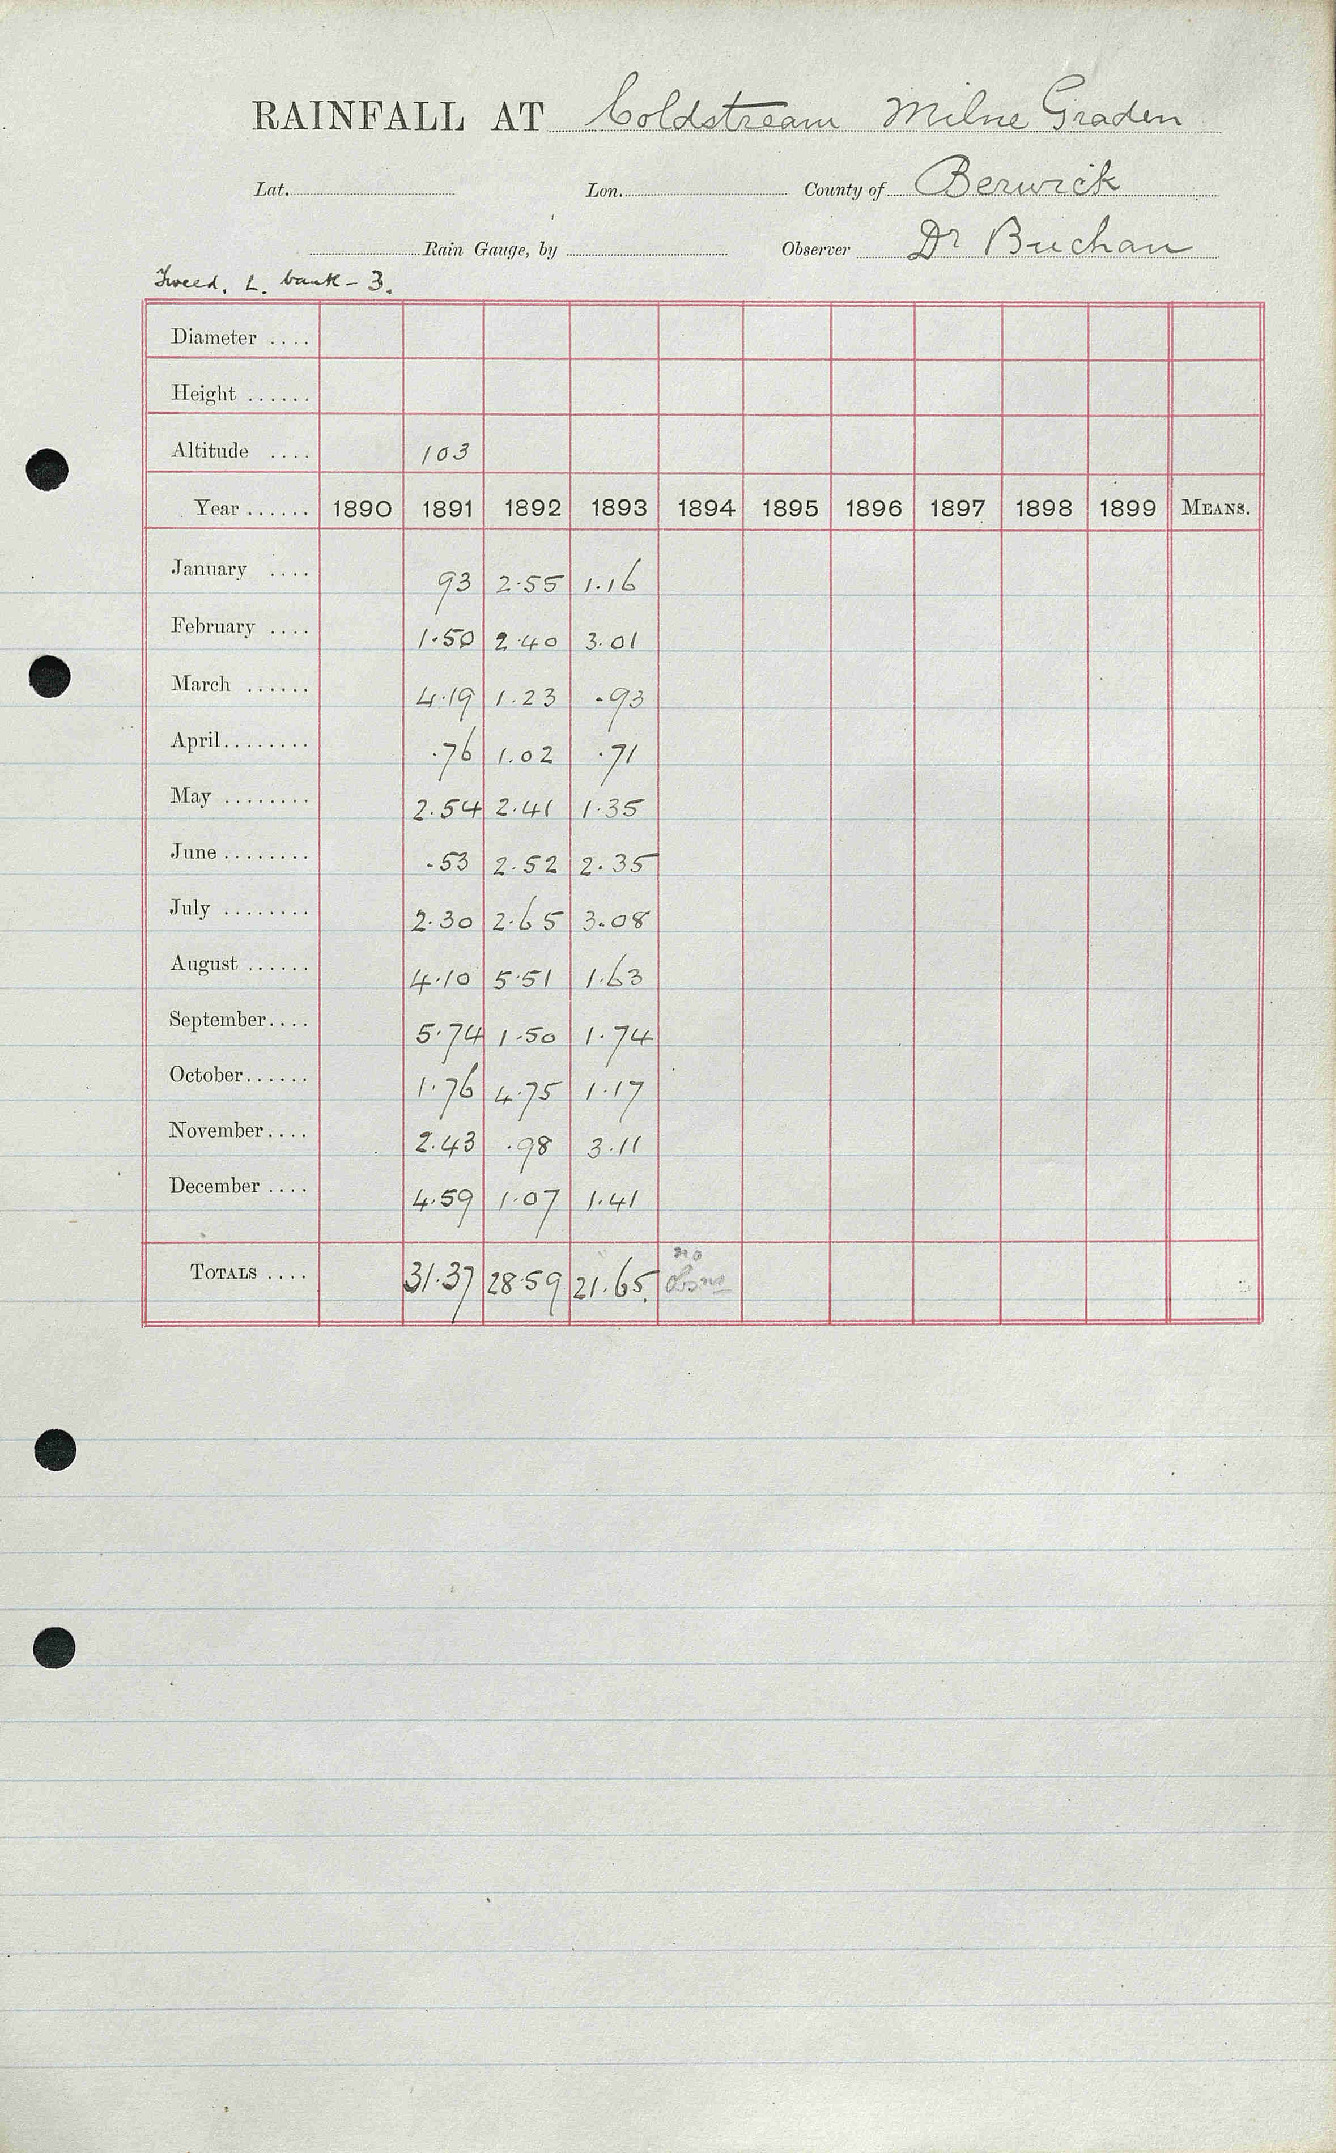 RAINFALL AT Coldstream Milne Graden
Lat. Lon. County of Berwick
Rain Gauge, by Observer Dr Buchan
Tweed. L. bank - 3.
Diameter ....
Height ......
Altitude .... 103
Year ...... 1890 1891 1892 1893 1894 1895 1896 1897 1898 1899 MEANS.
January .... 93 2.55 1.16
February .... 1.50 2.40 3.01
March ...... 4.19 1.23 .93
April ........ .76 1.02 .71
May ........ 2.54 2.41 1.35
June ........ .53 2.52 2.35
July ........ 2.30 2.65 3.08
August ...... 4.10 5.51 1.63
September.... 5.74 1.50 1.74
October...... 1.76 4.75 1.17
November.... 2.43 .98 3.11
December .... 4.59 1.07 1.41
TOTALS .... 31.37 28.59 21.65. no Obsns